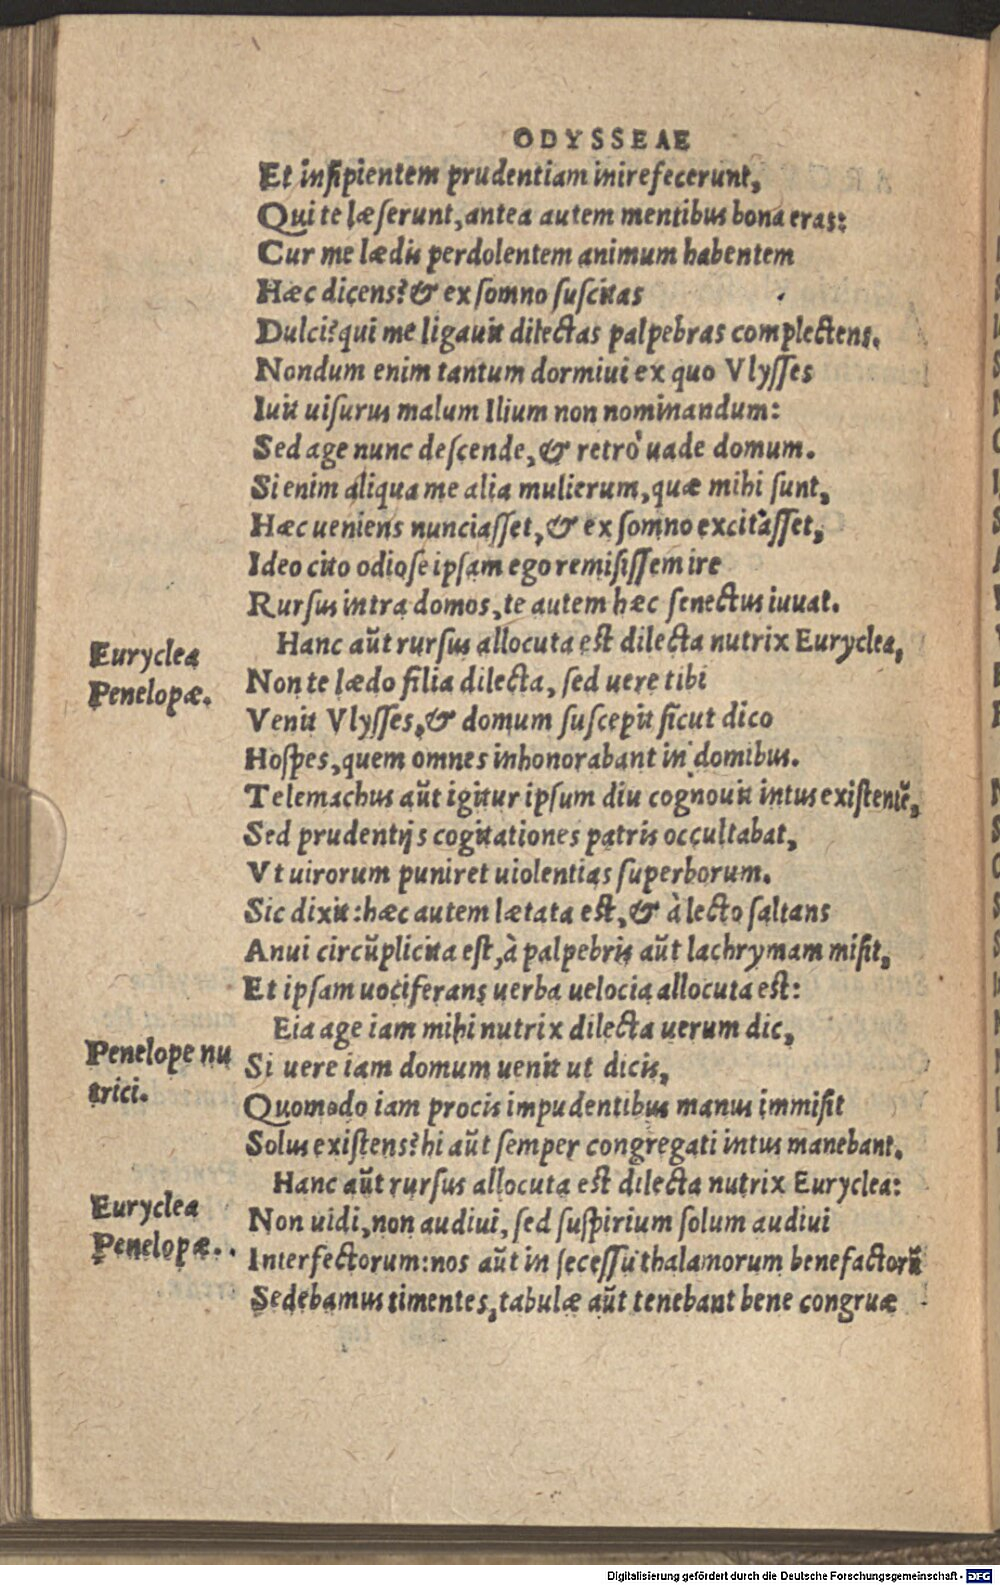 ODYSSEAE
Et insipientem prudentiam inire fecerunt,
Qui te læserunt, antea autem mentibus bona eras:
Cur me lædis perdolentem animum habentem
Hæc dicens? & ex somno suscitas
Dulci? qui me ligauit dilectas palpebras complectens.
Nondum enim tantum dormiui ex quo Vlysses
Iuit uisurus malum Ilium non nominandum:
Sed age nunc descende, & retrò uade domum.
Si enim aliqua me alia mulierum, quæ mihi sunt,
Hæc ueniens nunciasset, & ex somno excitasset,
Ideo cito odiose ipsam ego remisissem ire
Rursus intra domos, te autem hæc senectus iuuat.
Hanc aūt rursus allocuta est dilecta nutrix Euryclea,
Euryclea
Penelopæ.
Non te lædo filia dilecta, sed uere tibi
Venit Vlysses, & domum suscepit sicut dico
Hospes, quem omnes inhonorabant in domibus.
Telemachus aūt igitur ipsum diu cognouit intus existentē,
Sed prudentijs cogitationes patris occultabat,
Vt uirorum puniret uiolentias superborum.
Sic dixit: hæc autem lætata est, & à lecto saltans
Anui circūplicita est, à palpebris aūt lachrymam misit,
Et ipsam uociferans uerba uelocia allocuta est:
Eia age iam mihi nutrix dilecta uerum dic,
Penelope nu
trici.
Si uere iam domum uenit ut dicis,
Quomodo iam procis impudentibus manus immisit
Solus existens? hi aūt semper congregati intus manebant.
Hanc aūt rursus allocuta est dilecta nutrix Euryclea:
Euryclea
Penelopæ.
Non uidi, non audiui, sed suspirium solum audiui
Interfectorum: nos aūt in secessu thalamorum benefactorū
Sedebamus timentes, tabulæ aūt tenebant bene congruæ
Digitalisierung gefördert durch die Deutsche Forschungsgemeinschaft - DFG